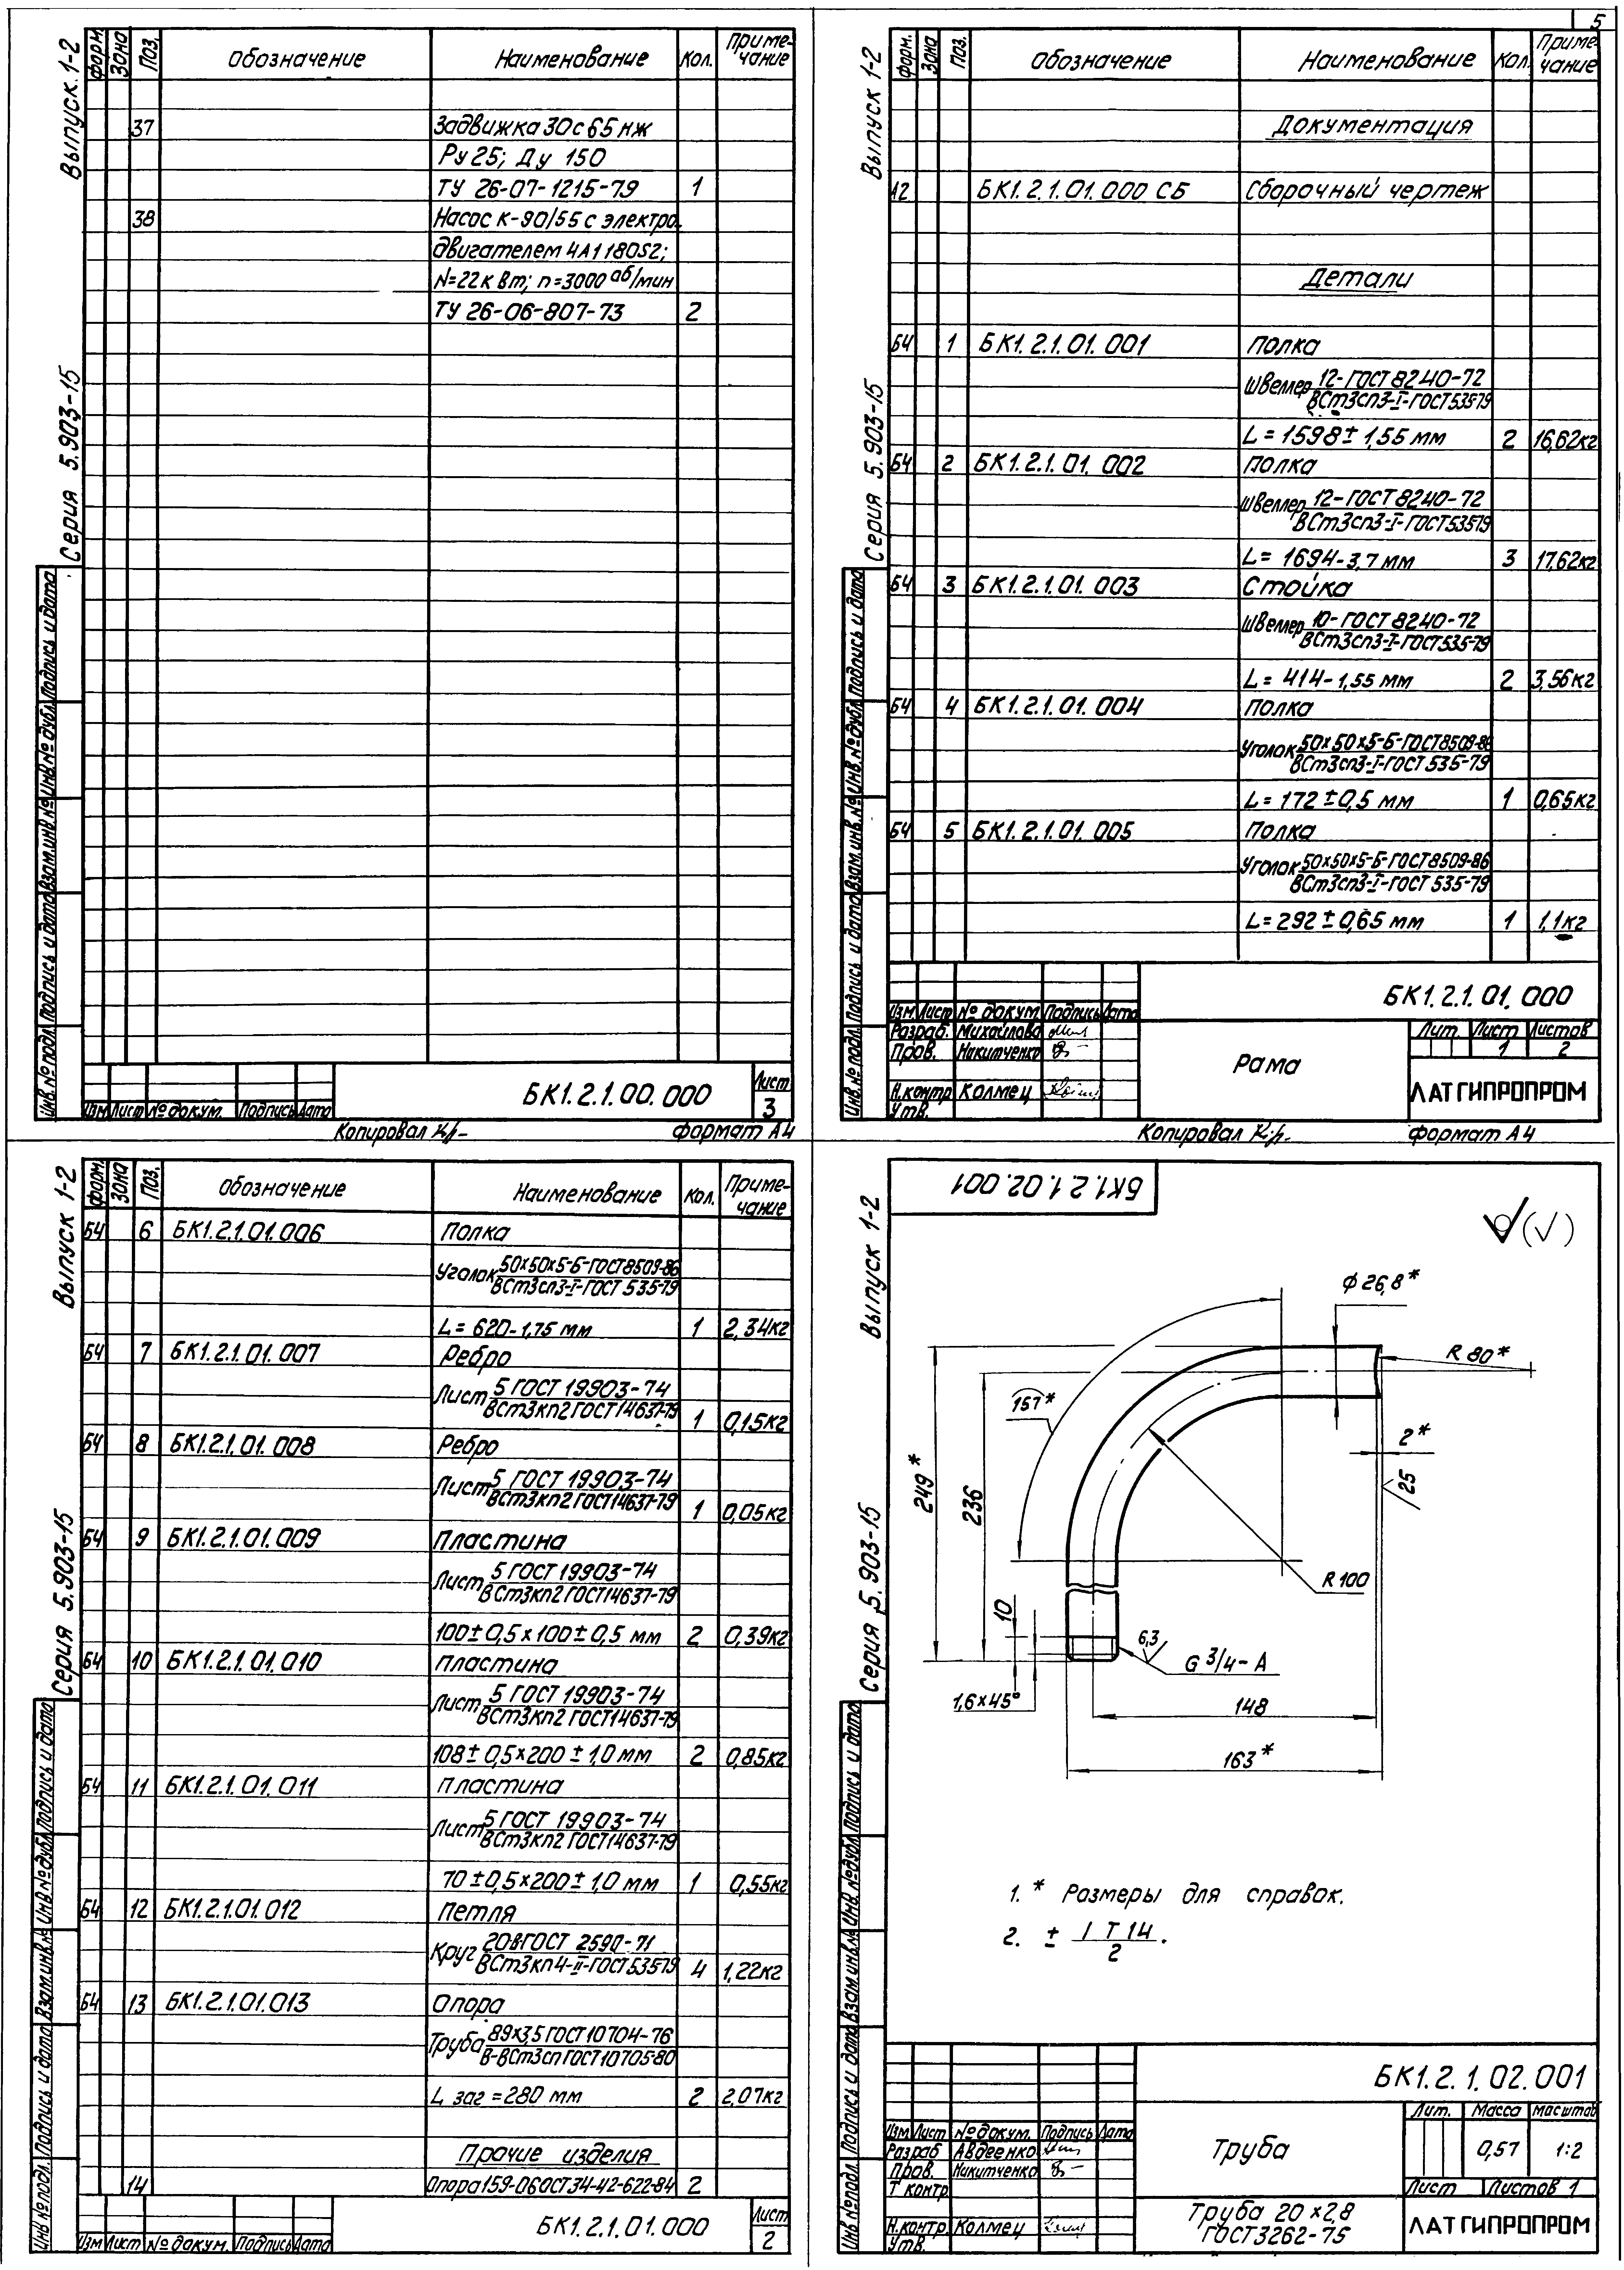 5
Выпуск. 1-2
Серия 5.903-15
Форм. Зона Поз. Обозначение Наименование Кол. Приме-
чание
37 Задвижка 30с65нж
Ру 25; Ду 150
ТУ 26-07-1215-79 1
38 Насос К-90/55 с электро-
двигателем 4А1180S2;
N=22кВт; n=3000 об/мин
ТУ 26-06-807-73 2
Инв. № подл. Подпись и дата Взам. инв. № Инв. № дубл. Подпись и дата
Изм Лист № докум. Подпись Дата
БК1.2.1.00.000
Лист
3
Копировал
Формат А4
Выпуск 1-2
Серия 5.903-15
Форм. Зона Поз. Обозначение Наименование Кол. Приме-
чание
Документация
А2 БК1.2.1.01.000 СБ Сборочный чертеж
Детали
БЧ 1 БК1.2.1.01.001 Полка
Швеллер 12-ГОСТ 8240-72
ВСт3сп3-I-ГОСТ 535-79
L=1598±1,55 мм 2 16,62кг
БЧ 2 БК1.2.1.01.002 Полка
Швеллер 12-ГОСТ 8240-72
ВСт3сп3-I-ГОСТ 535-79
L=1694-3,7 мм 3 17,62кг
БЧ 3 БК1.2.1.01.003 Стойка
Швеллер 10-ГОСТ 8240-72
ВСт3сп3-I-ГОСТ 535-79
L=414-1,55 мм 2 3,56кг
БЧ 4 БК1.2.1.01.004 Полка
Уголок 50×50×5-Б-ГОСТ 8509-86
ВСт3сп3-I-ГОСТ 535-79
L=172±0,5 мм 1 0,65кг
БЧ 5 БК1.2.1.01.005 Полка
Уголок 50×50×5-Б-ГОСТ 8509-86
ВСт3сп3-I-ГОСТ 535-79
L=292±0,65 мм 1 1,1кг
Инв. № подл. Подпись и дата Взам. инв. № Инв. № дубл. Подпись и дата
БК1.2.1.01.000
Изм Лист № докум. Подпись Дата
Разраб. Михайлова
Пров. Никитченко
Н.контр. Колмец
Утв.
Рама
Лит. Лист Листов
1 2
ЛАТГИПРОПРОМ
Копировал
Формат А4
Выпуск 1-2
Серия 5.903-15
Форм. Зона Поз. Обозначение Наименование Кол. Приме-
чание
БЧ 6 БК1.2.1.01.006 Полка
Уголок 50×50×5-Б-ГОСТ 8509-86
ВСт3сп3-I-ГОСТ 535-79
L=620-1,75 мм 1 2,34кг
БЧ 7 БК1.2.1.01.007 Ребро
Лист 5 ГОСТ 19903-74
ВСт3кп2 ГОСТ 14637-79 1 0,15кг
БЧ 8 БК1.2.1.01.008 Ребро
Лист 5 ГОСТ 19903-74
ВСт3кп2 ГОСТ 14637-79 1 0,05кг
БЧ 9 БК1.2.1.01.009 Пластина
Лист 5 ГОСТ 19903-74
ВСт3кп2 ГОСТ 14637-79
100±0,5×100±0,5 мм 2 0,39кг
БЧ 10 БК1.2.1.01.010 Пластина
Лист 5 ГОСТ 19903-74
ВСт3кп2 ГОСТ 14637-79
108±0,5×200±1,0 мм 2 0,85кг
БЧ 11 БК1.2.1.01.011 Пластина
Лист 5 ГОСТ 19903-74
ВСт3кп2 ГОСТ 14637-79
70±0,5×200±1,0 мм 1 0,55кг
БЧ 12 БК1.2.1.01.012 Петля
Круг 20-В ГОСТ 2590-71
ВСт3кп4-II-ГОСТ 535-79 4 1,22кг
БЧ 13 БК1.2.1.01.013 Опора
Труба 89×3,5 ГОСТ 10704-76
В-ВСт3сп ГОСТ 10705-80
L заг=280 мм 2 2,07кг
Прочие изделия
14 Опора 159-06 ОСТ 34-42-622-84 2
Инв № подл. Подпись и дата Взам. инв. № Инв. № дубл. Подпись и дата
Изм Лист № докум. Подпись Дата
БК1.2.1.01.000
Лист
2
Выпуск 1-2
Серия 5.903-15
БК1.2.1.02.001
(√)
ϕ 26,8*
R 80*
157*
249*
236
2*
25
R 100
10
6,3
G 3/4-А
1,6×45°
148
163*
1. * Размеры для справок.
2. ± IT14/2.
Инв № подл. Подпись и дата Взам. инв. № Инв. № дубл. Подпись и дата
БК1.2.1.02.001
Изм Лист № докум. Подпись Дата
Разраб Авдеенко
Пров. Никитченко
Т контр.
Н.контр. Колмец
Утв.
Труба
Лит. Масса Масштаб
0,57 1:2
Лист Листов 1
Труба 20×2,8
ГОСТ 3262-75
ЛАТГИПРОПРОМ